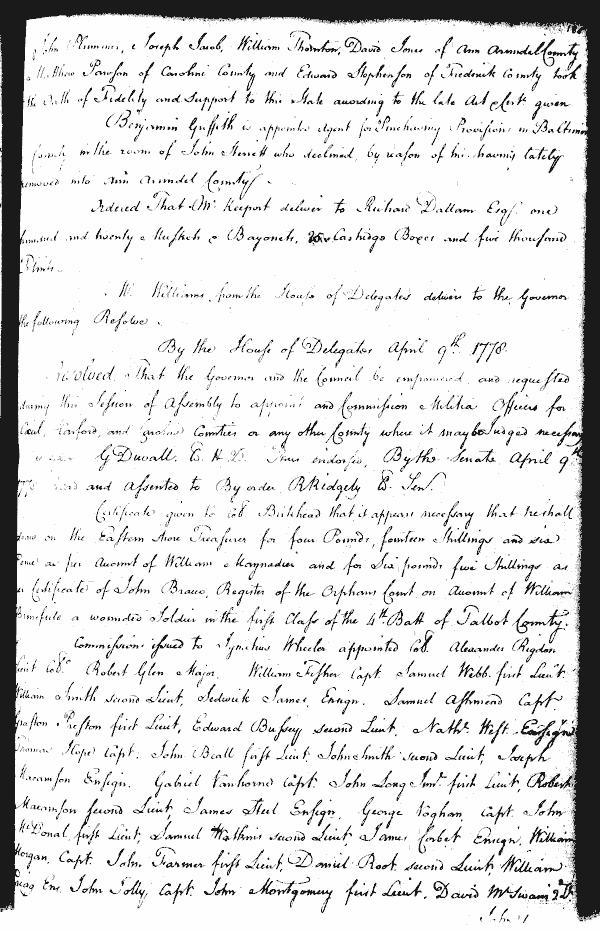 John Plummer, Joseph Jacob, William Thornton, David Jones of Ann Arundel County
Matthew Pawson of Caroline County and Edward Stephenson of Frederick County took
the Oath of Fidelity and Support to this State according to the late Act Cert. given
Benjamin Griffith is appointed Agent for Purchasing Provisions in Baltimore
County in the room of John Sterrett who declined, by reason of his having lately
removed into Ann Arundel County.
Ordered That Mr. Keeport deliver to Richard Dallam Esqr. one
hundred and twenty Muskets & Bayonets, Cartridge Boxes and five thousand
Flints.
W. Williams from the House of Delegates delivers to the Governor
the following Resolve.
By the House of Delegates April 9th. 1778.
Resolved, That the Governor and the Council be impowered and requested
during this Session of Assembly to appoint and Commission Militia Officers for
Cecil, Harford, and Caroline Counties or any other County where it may be Judged necessary
G Duvall. C. H. D. Thus endorsed, By the Senate April 9th
1778 and Assented to By order R Ridgely C. Sen.
Certificate given to Col. Birkhead that it appears necessary that he shall
draw on the Eastern Shore Treasurer for four Pounds, fourteen Shillings and six
as per Account of William Maynadier and for Six pounds five Shillings as
Certificate of John Bracco, Register of the Orphans Court on Account of William
a wounded Soldier in the first Class of the 4th. Batt of Talbot County.
Commission issued to Ignatius Wheeler appointed Col. Alexander Rigdon
Lieut Col. Robert Glen Major. William Fisher Capt. Samuel Webb first Lieut.
William Smith second Lieut, Sedwick James, Ensign. Samuel Ashmead Capt
Grafton Preston first Lieut, Edward Bussey second Lieut. Nathl. West Ensign
Thomas Hope Capt. John Beall first Lieut John Smith second Lieut, Joseph
Macamson Ensign. Gabriel Vanhorne Capt. John Long Junr. first Lieut, Robert
Macamson second Lieut James Steel Ensign, George Voghan, Capt. John
McDonal, first Lieut, Samuel Watkins second Lieut, James Corbet Ensign, William
Morgan, Capt. John Farmer first Lieut, Daniel Root second Lieut William
Ens. John Jolly, Capt. John Montgomery first Lieut. David McSwain 2d. Lt
John